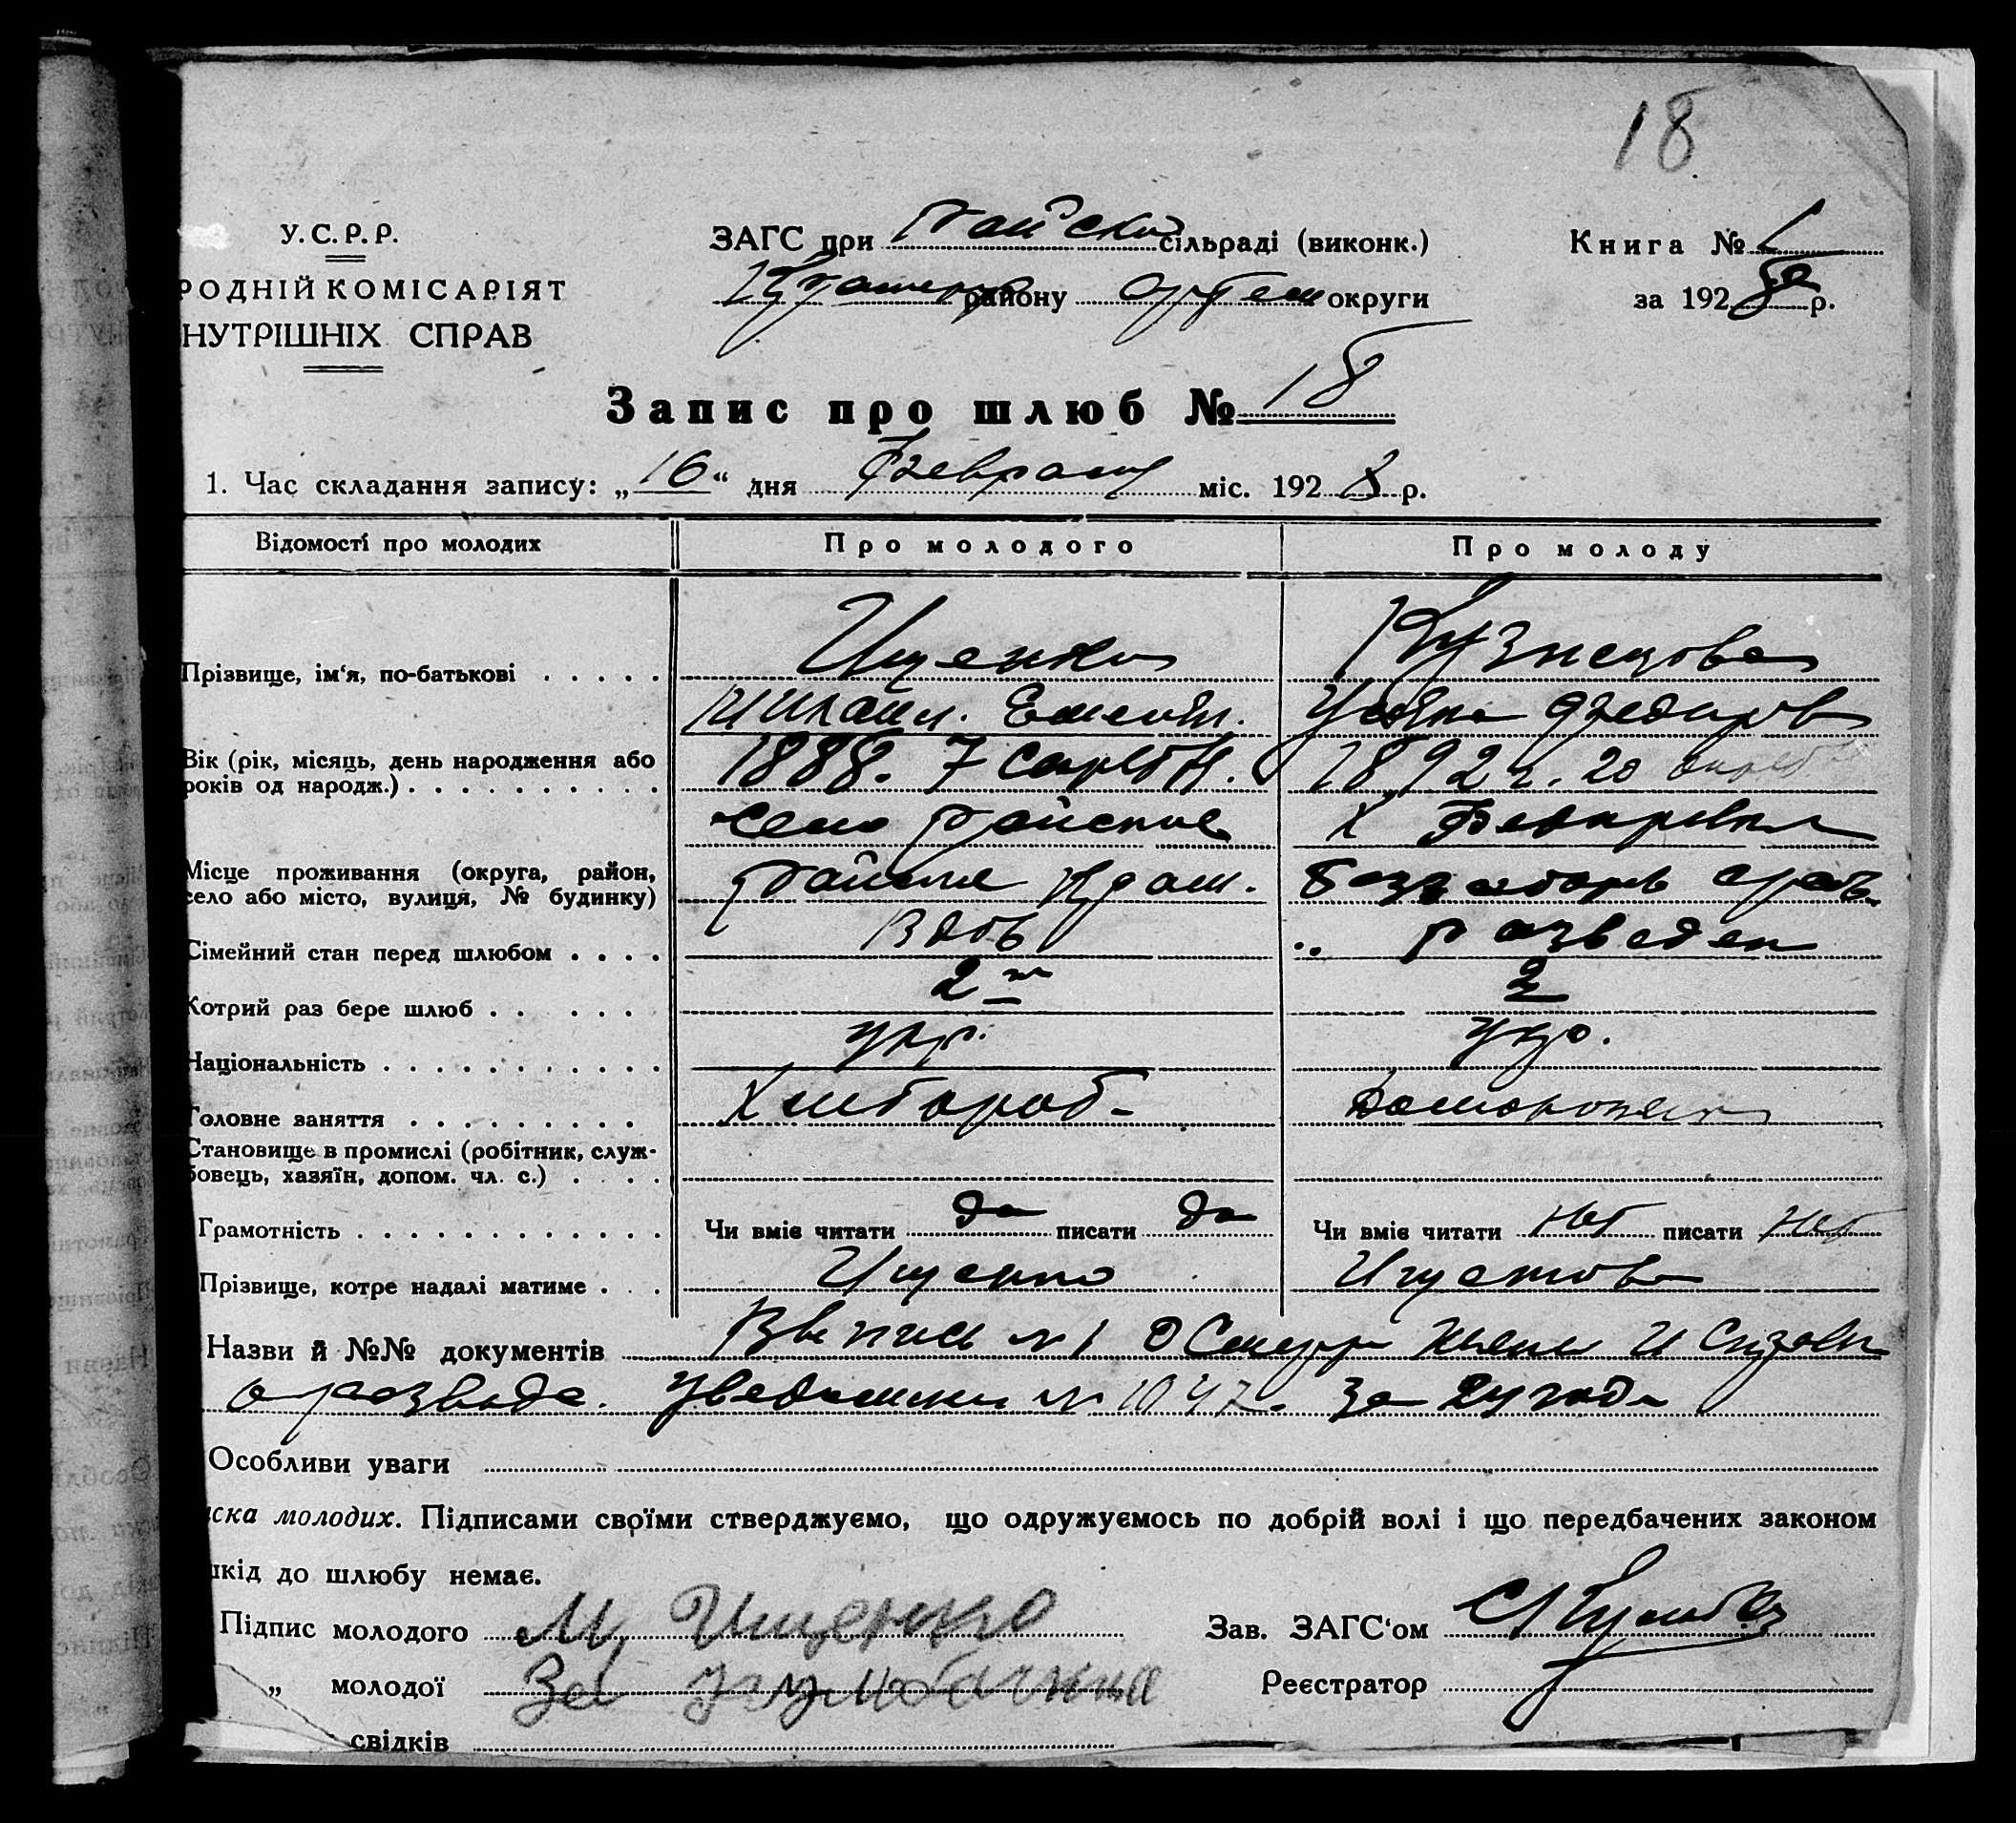 18
У.С.Р.Р.
РОДНІЙ КОМІСАРІЯТ
НУТРІШНІХ СПРАВ
ЗАГС при сільраді (виконк.)
району округи
Книга № 1
за 1928 р.
Запис про шлюб № 18
1. Час складання запису: „16“ дня Февраля міс. 1928 р.
Відомості про молодих Про молодого Про молоду
Прізвище, ім‘я, по-батькові . . . . . Ищенко Кузнецова
Федоров
Вік (рік, місяць, день народження або
років од народж.) . . . . . . . . . . 1888. 7 1892 г. 20
село Райское х Федоровка
Місце проживання (округа, район,
село або місто, вулиця, № будинку) Крам.
Сімейний стан перед шлюбом . . . . Вдов .. разведен
Котрий раз бере шлюб . . . . . . 2 2
Національність . . . . . . . . . . . укр. укр.
Головне заняття . . . . . . . . . Хлебороб Домохозяйк
Становище в промислі (робітник, служ-
бовець, хазяїн, допом. чл. с.) . . . .
Грамотність . . . . . . . . . . . . Чи вміє читати да писати да Чи вміє читати Нет писати Нет
Прізвище, котре надалі матиме . . . Ищенко Ищенкова
Назви й №№ документів № 1 о жены и
о разводе. № 1047. за 24 года
Особливи уваги
иска молодих. Підписами своїми стверджуємо, що одружуємось по добрій волі і що передбачених законом
шкід до шлюбу немає.
Підпис молодого М Ищенко Зав. ЗАГС‘ом
„ молодої За Реєстратор
свідків